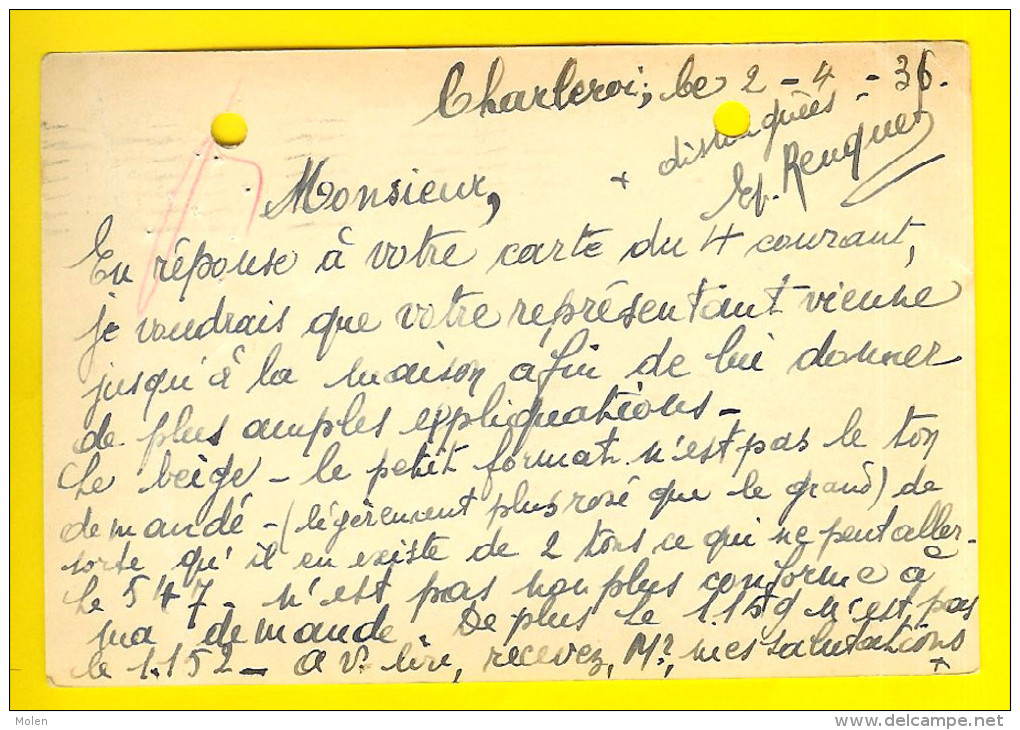 Charleroi, le 2 - 4 - 36.
Monsieur,
En réponse à votre carte du 4 courant,
je voudrais que votre représentant vienne
jusqu'à la maison afin de lui donner
de plus amples appliquations -
Le beige - le petit format n'est pas le ton
demandé - (légèrement plus rosé que le grand) de
sorte qu'il en existe de 2 tons ce qui ne peut aller -
Le 547 - n'est pas non plus conforme à
ma demande. De plus le 1.159 n'est pas
le 1.152 - A v. lire, recevez, Mr, mes salutations
+
+ distinguées
Renquet
Molen
www.delcampe.net